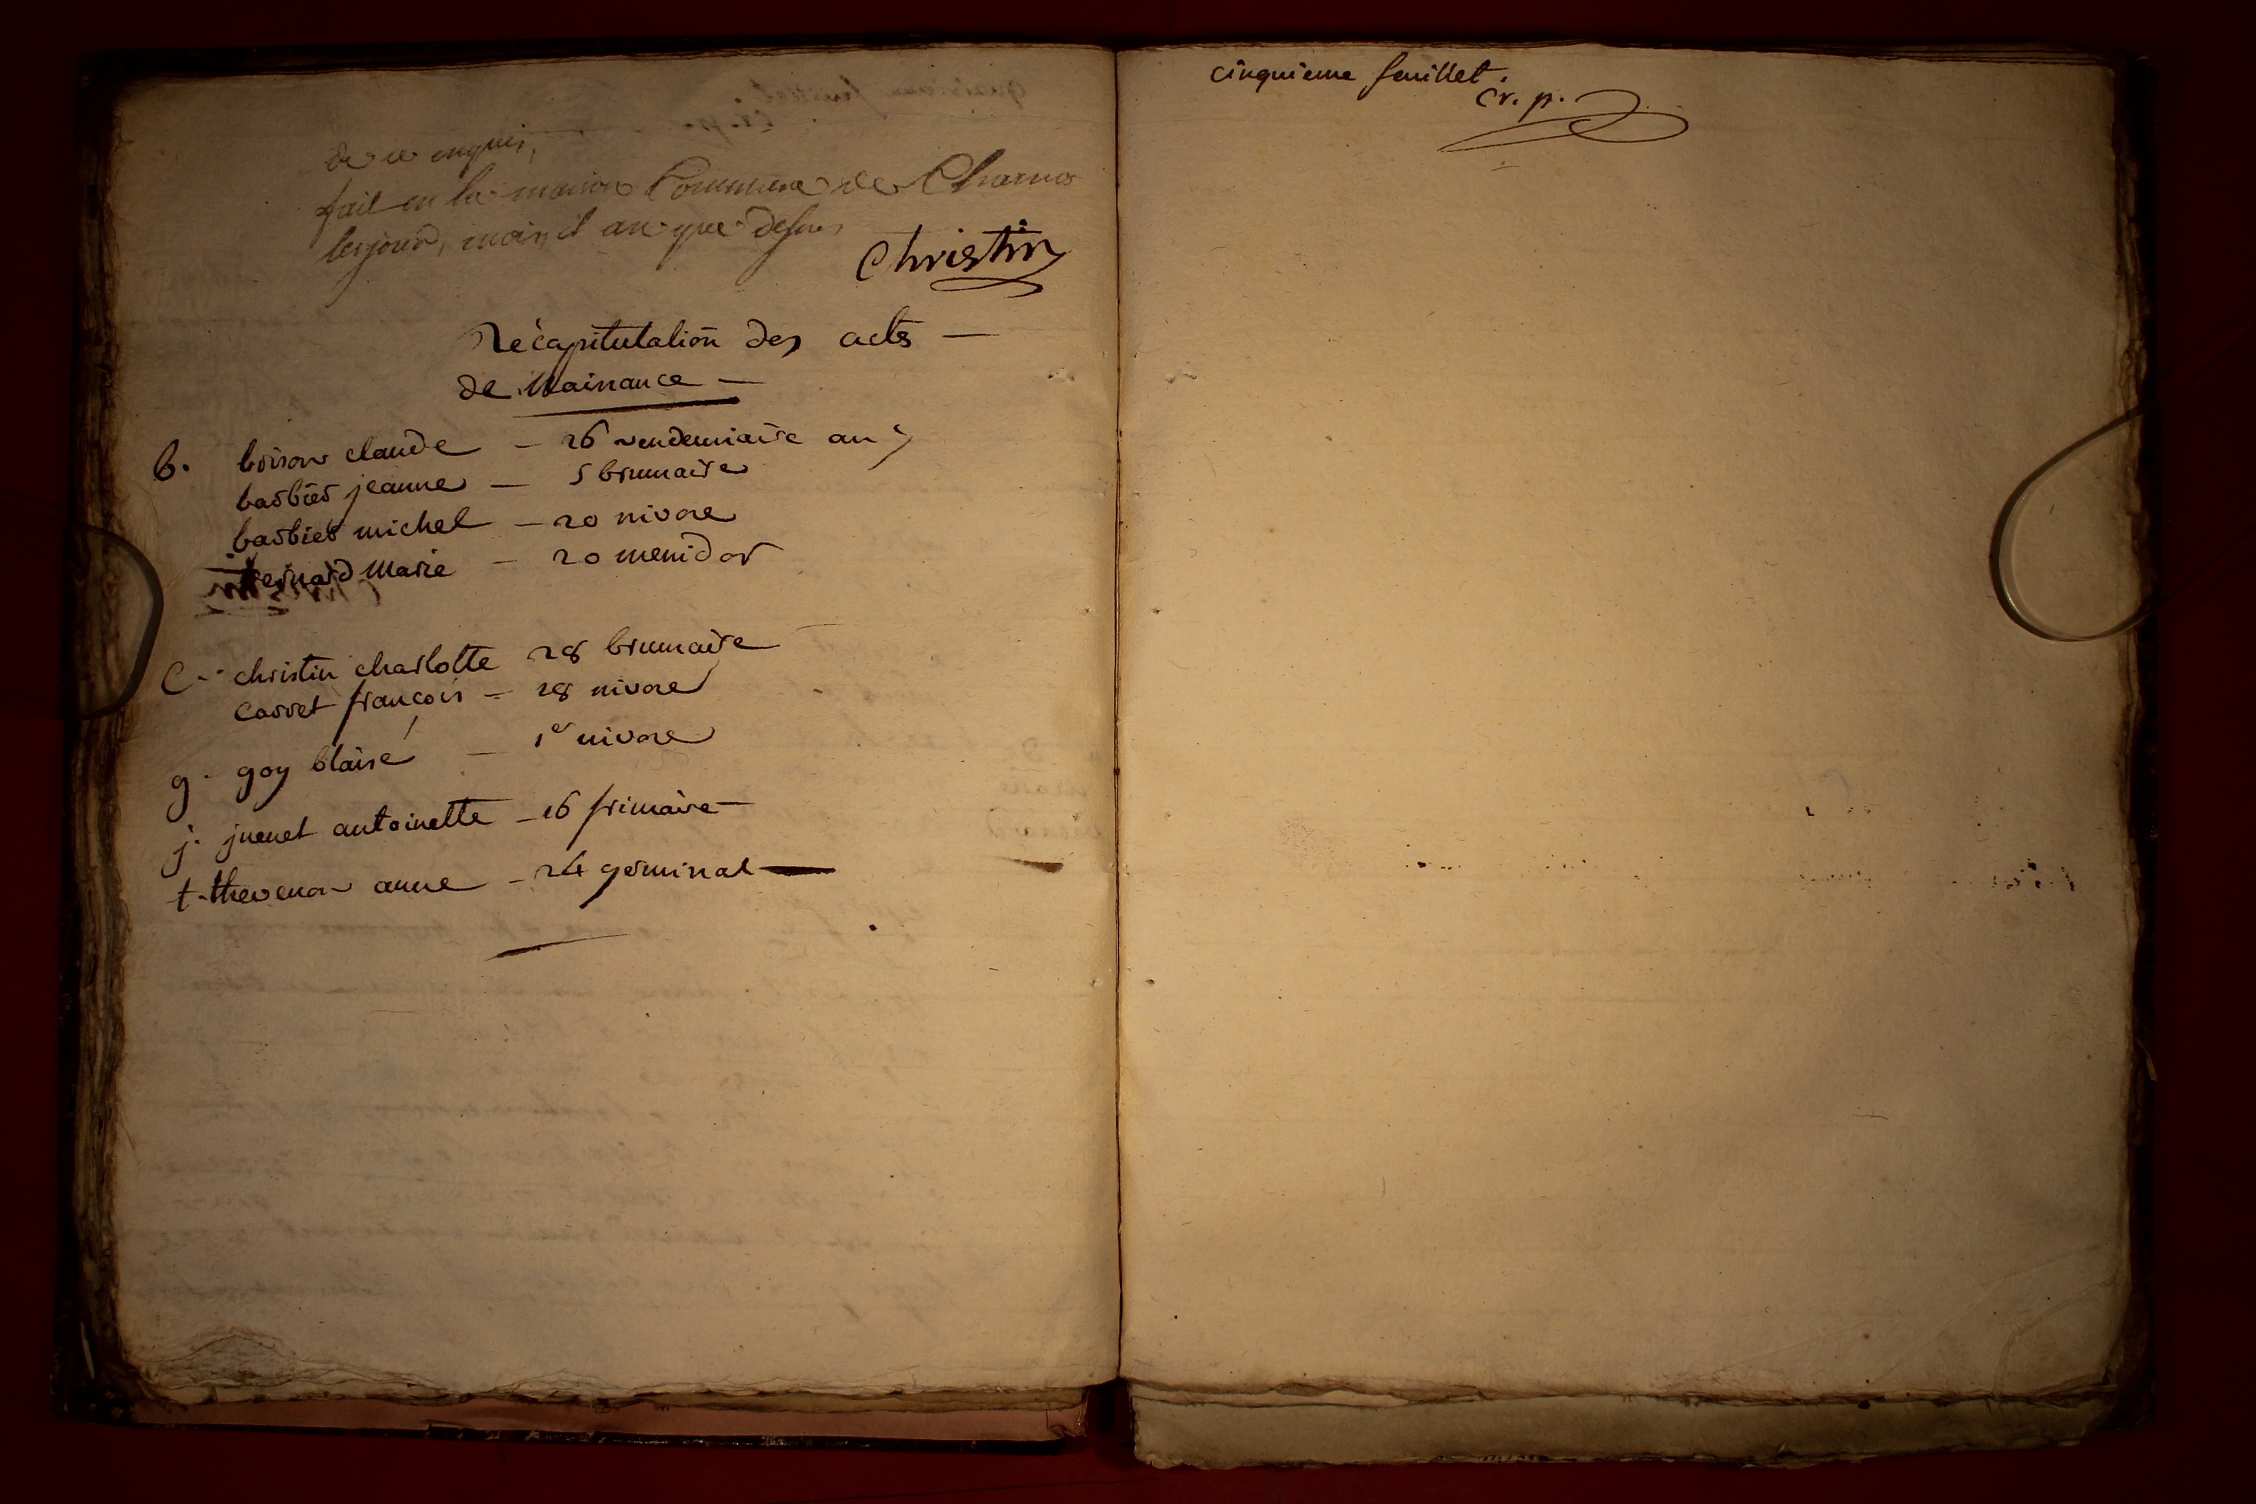 de ce enquis,
fait en la maison Commune de Charnos
les jour, mois, et an que dessus
Christin
Récapitulation des acts —
de Naisance —
b. boison claude — 26 vendemiaire an 7
barbier jeanne — 5 brumaire
barbier michel — 20 nivose
bernard marie — 20 mesidor
C. christin charlotte 28 brumaire
carret françois — 28 nivose
g. goy blaise — 1er nivose
j. juenet antoinette — 16 frimaire —
t. thevenon anne — 24 germinal —
cinquieme feuillet.
cr. p.